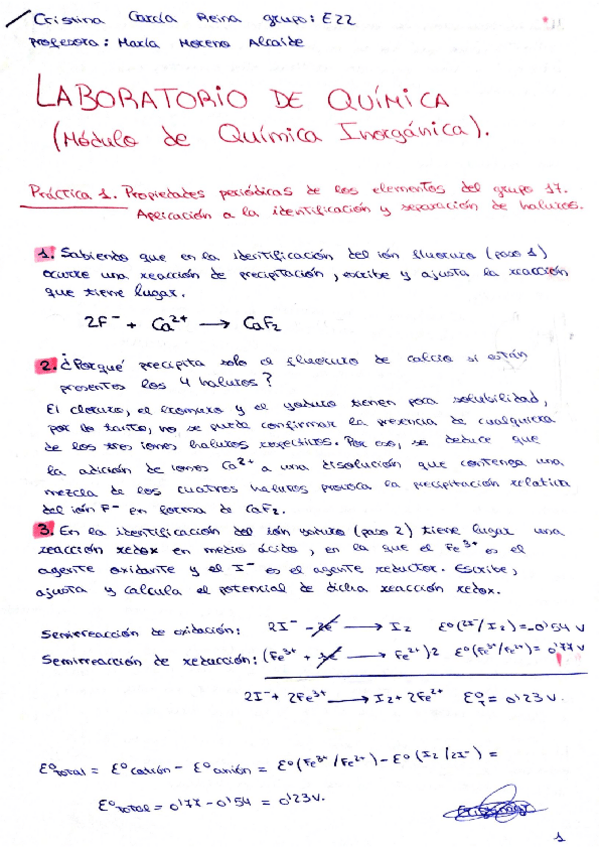 Cristina García Reina grupo: E22
Profesora: María Moreno Alcaide
LABORATORIO DE QUÍMICA
(Módulo de Química Inorgánica).
Práctica 1. Propiedades periódicas de los elementos del grupo 17.
Aplicación a la identificación y separación de haluros.
1. Sabiendo que en la identificación del ión fluoruro (paso 1)
ocurre una reacción de precipitación, escribe y ajusta la reacción
que tiene lugar.
2F⁻ + Ca²⁺ → CaF₂
2. ¿Porqué precipita solo el fluoruro de calcio si están
presentes los 4 haluros?
El cloruro, el bromuro y el yoduro tienen poca solubilidad,
por lo tanto, no se puede confirmar la presencia de cualquiera
de los tres iones haluros respectivos. Por eso, se deduce que
la adición de iones Ca²⁺ a una disolución que contenga una
mezcla de los cuatros haluros provoca la precipitación relativa
del ión F⁻ en forma de CaF₂.
3. En la identificación del ión yoduro (paso 2) tiene lugar una
reacción redox en medio ácido, en la que el Fe³⁺ es el
agente oxidante y el I⁻ es el agente reductor. Escribe,
ajusta y calcula el potencial de dicha reacción redox.
Semirreacción de oxidación: 2I⁻ - 2e⁻ → I₂ Eº(2I⁻/I₂)=-0'54 V
Semirreacción de reducción: (Fe³⁺ + → Fe²⁺)2 Eº(Fe³⁺/Fe²⁺)= 0'77 V
2I⁻ + 2Fe³⁺ → I₂ + 2Fe²⁺ EºT = 0'23 V.
Eºtotal = Eºcatión - Eºanión = Eº(Fe³⁺/Fe²⁺) - Eº(I₂/2I⁻) =
Eºtotal = 0'77 - 0'54 = 0'23 V.
1